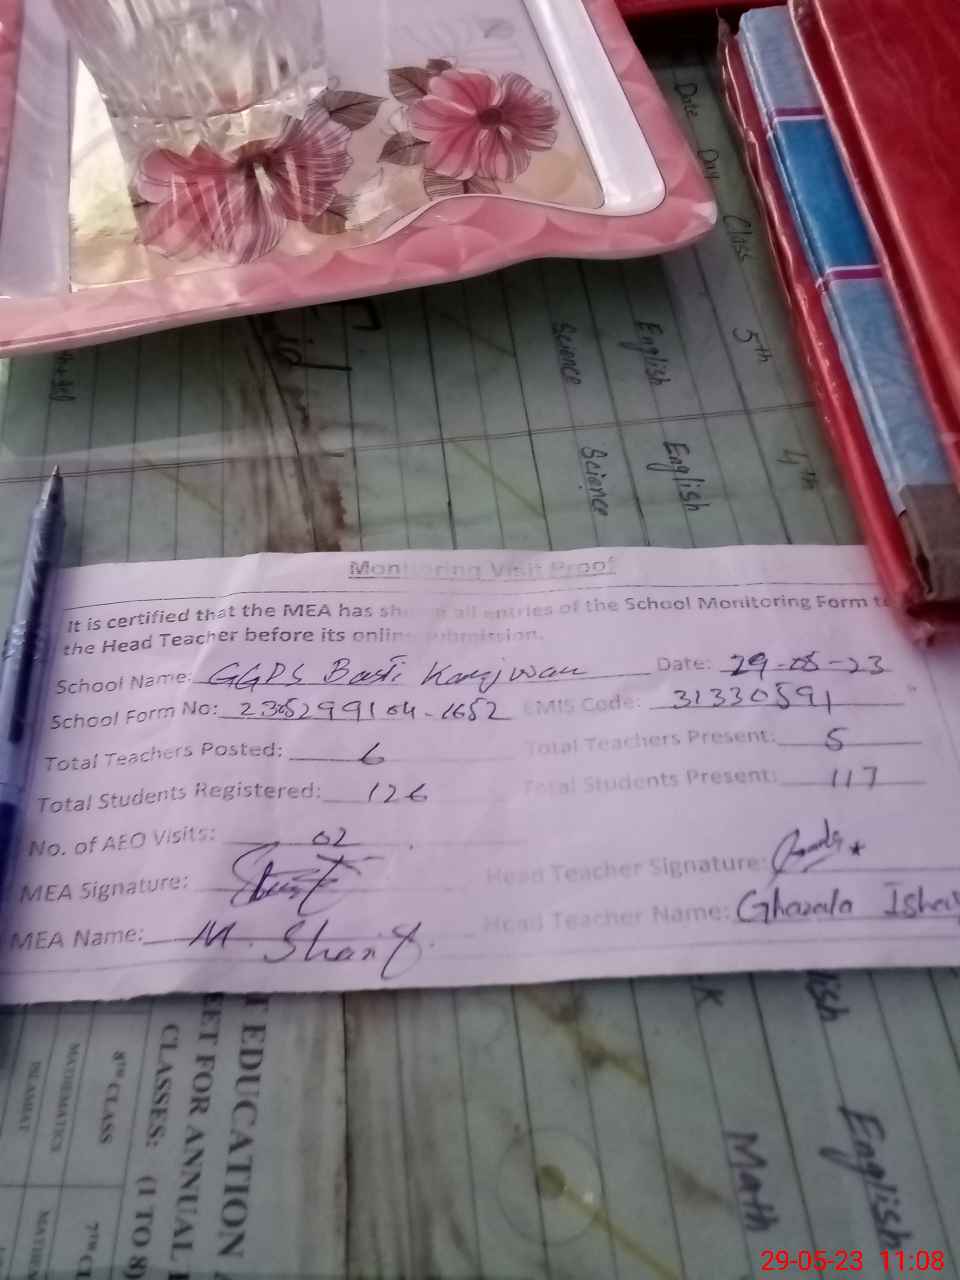 Date Day Class
English 5th
Science
English 4th
Science
Monitoring Visit Proof
It is certified that the MEA has shown all entries of the School Monitoring Form to
the Head Teacher before its online submission.
School Name: GGPS Basti Date: 29-05-23
School Form No: 2305299104-1652 EMIS Code: 31330591
Total Teachers Posted: 6 Total Teachers Present: 5
Total Students Registered: 126 Total Students Present: 117
No. of AEO Visits: 02
MEA Signature: Head Teacher Signature:
MEA Name: M. Sharif. Head Teacher Name: Ghazala
EDUCATION
FOR ANNUAL
CLASSES: (1 TO 8)
8TH CLASS 7TH
MATHEMATICS
ISLAMIAT
K
Math
English
29-05-23 11:08